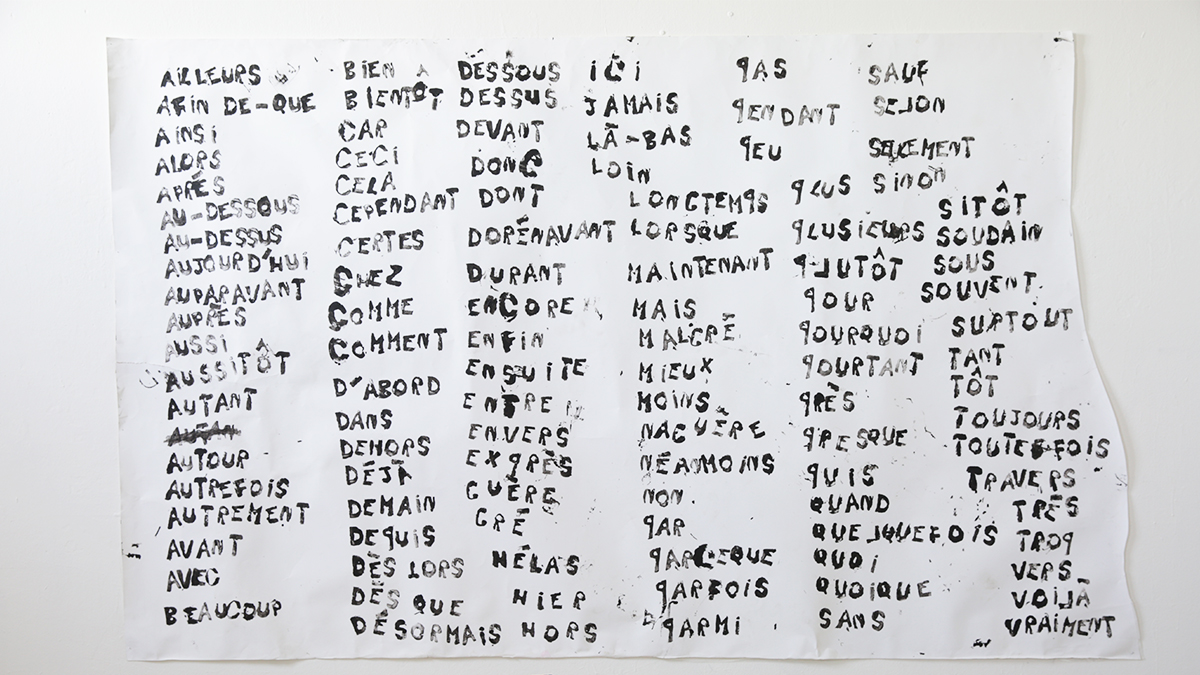 AILLEURS
AFIN DE-QUE
AINSI
ALORS
APRÈS
AU-DESSOUS
AU-DESSUS
AUJOURD'HUI
AUPARAVANT
AUPRÈS
AUSSI
AUSSITÔT
AUTANT
AUTAN
AUTOUR
AUTREFOIS
AUTREMENT
AVANT
AVEC
BEAUCOUP
BIEN
BIENTÔT
CAR
CECI
CELA
CEPENDANT
CERTES
CHEZ
COMME
COMMENT
D'ABORD
DANS
DEHORS
DÉJÀ
DEMAIN
DEPUIS
DÈS LORS
DÈS QUE
DÉSORMAIS
DESSOUS
DESSUS
DEVANT
DONC
DONT
DORÉNAVANT
DURANT
ENCORE
ENFIN
ENSUITE
ENTRE
ENVERS
EXPRÈS
GUÈRE
GRÉ
HÉLAS
HIER
HORS
ICI
JAMAIS
LÀ-BAS
LOIN
LONGTEMPS
LORSQUE
MAINTENANT
MAIS
MALGRÉ
MIEUX
MOINS
NAGUÈRE
NÉANMOINS
NON
PAR
PARCEQUE
PARFOIS
PARMI
PAS
PENDANT
PEU
PLUS
PLUSIEURS
PLUTÔT
POUR
POURQUOI
POURTANT
PRÈS
PRESQUE
PUIS
QUAND
QUELQUEFOIS
QUOI
QUOIQUE
SANS
SAUF
SELON
SEULEMENT
SINON
SITÔT
SOUDAIN
SOUS
SOUVENT
SURTOUT
TANT
TÔT
TOUJOURS
TOUTEFOIS
TRAVERS
TRÈS
TROP
VERS
VOILÀ
VRAIMENT